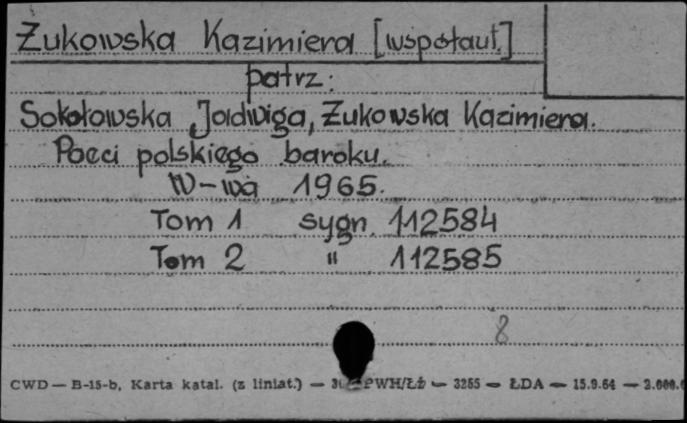 Żukowska Kazimiera [współaut.]
patrz:
Sokołowska Jadwiga, Żukowska Kazimiera.
Poeci polskiego baroku.
W-wa 1965.
Tom 1 sygn. 112584
Tom 2 " 112585
8
CWD — B-15-b, Karta katal. (z liniat.) — PWH/Łż — 3255 — ŁDA — 15.9.64 —